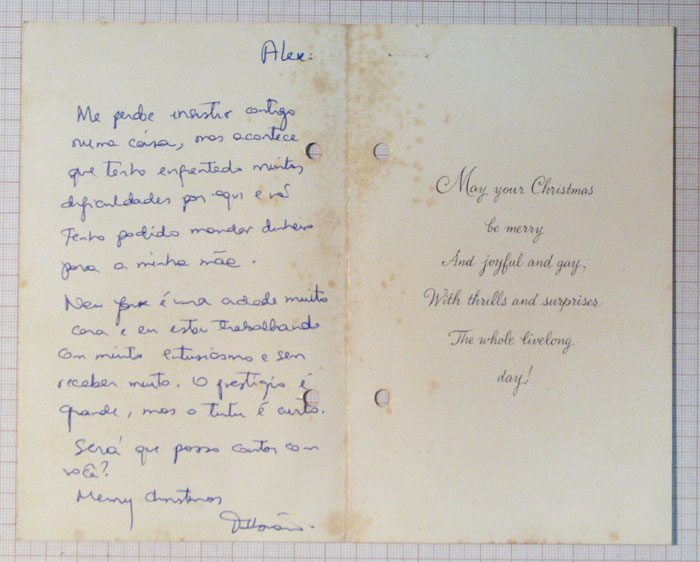 Alex:
Me perdoe insistir contigo
numa coisa, mas acontece
que tenho enfrentado muitas
dificuldades por aqui e não
tenho podido mandar dinheiro
para a minha mãe.
New York é uma cidade muito
cara e eu estou trabalhando
com muito entusiasmo e sem
receber muito. O prestígio é
grande, mas o tutu é curto.
Será que posso contar com
você?
Merry Christmas
May your Christmas
be merry
And joyful and gay,
With thrills and surprises
The whole livelong
day!